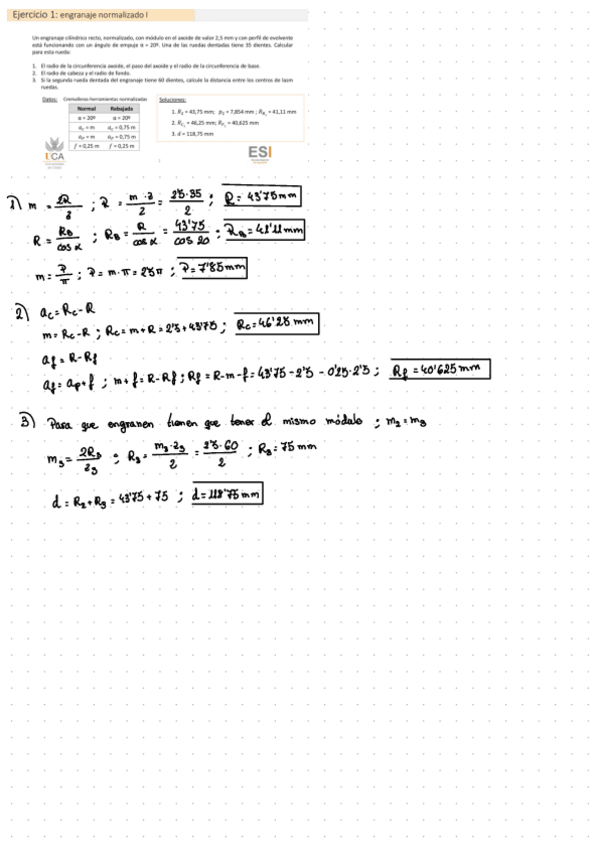 Ejercicio 1: engranaje normalizado I
Un engranaje cilíndrico recto, normalizado, con módulo en el axoide de valor 2,5 mm y con perfil de evolvente
está funcionando con un ángulo de empuje α = 20º. Una de las ruedas dentadas tiene 35 dientes. Calcular
para esta rueda:
1. El radio de la circunferencia axoide, el paso del axoide y el radio de la circunferencia de base.
2. El radio de cabeza y el radio de fondo.
3. Si la segunda rueda dentada del engranaje tiene 60 dientes, calcule la distancia entre los centros de las
ruedas.
Datos: Cremalleras-herramientas normalizadas
Normal Rebajada
α = 20º α = 20º
a_c = m a_c = 0,75 m
a_p = m a_p = 0,75 m
f = 0,25 m f = 0,25 m
Soluciones:
1. R_2 = 43,75 mm; p_2 = 7,854 mm; R_b2 = 41,11 mm
2. R_c2 = 46,25 mm; R_f2 = 40,625 mm
3. d = 118,75 mm
UCA
ESI
1) m = 2R/z ; R = m·z/2 = 2'5·35/2 ; R = 43'75 mm
R = R_B/cos α ; R_B = R/cos α = 43'75/cos 20 ; R_B = 41'11 mm
m = P/π ; P = m·π = 2'5π ; P = 7'85 mm
2) a_c = R_c - R
m = R_c - R ; R_c = m + R = 2'5 + 43'75 ; R_c = 46'25 mm
a_f = R - R_f
a_f = a_p + f ; m + f = R - R_f ; R_f = R - m - f = 43'75 - 2'5 - 0'25·2'5 ; R_f = 40'625 mm
3) Para que engranen tienen que tener el mismo módulo ; m_2 = m_3
m_3 = 2R_3/z_3 ; R_3 = m_3·z_3/2 = 2'5·60/2 ; R_3 = 75 mm
d = R_2 + R_3 = 43'75 + 75 ; d = 118'75 mm